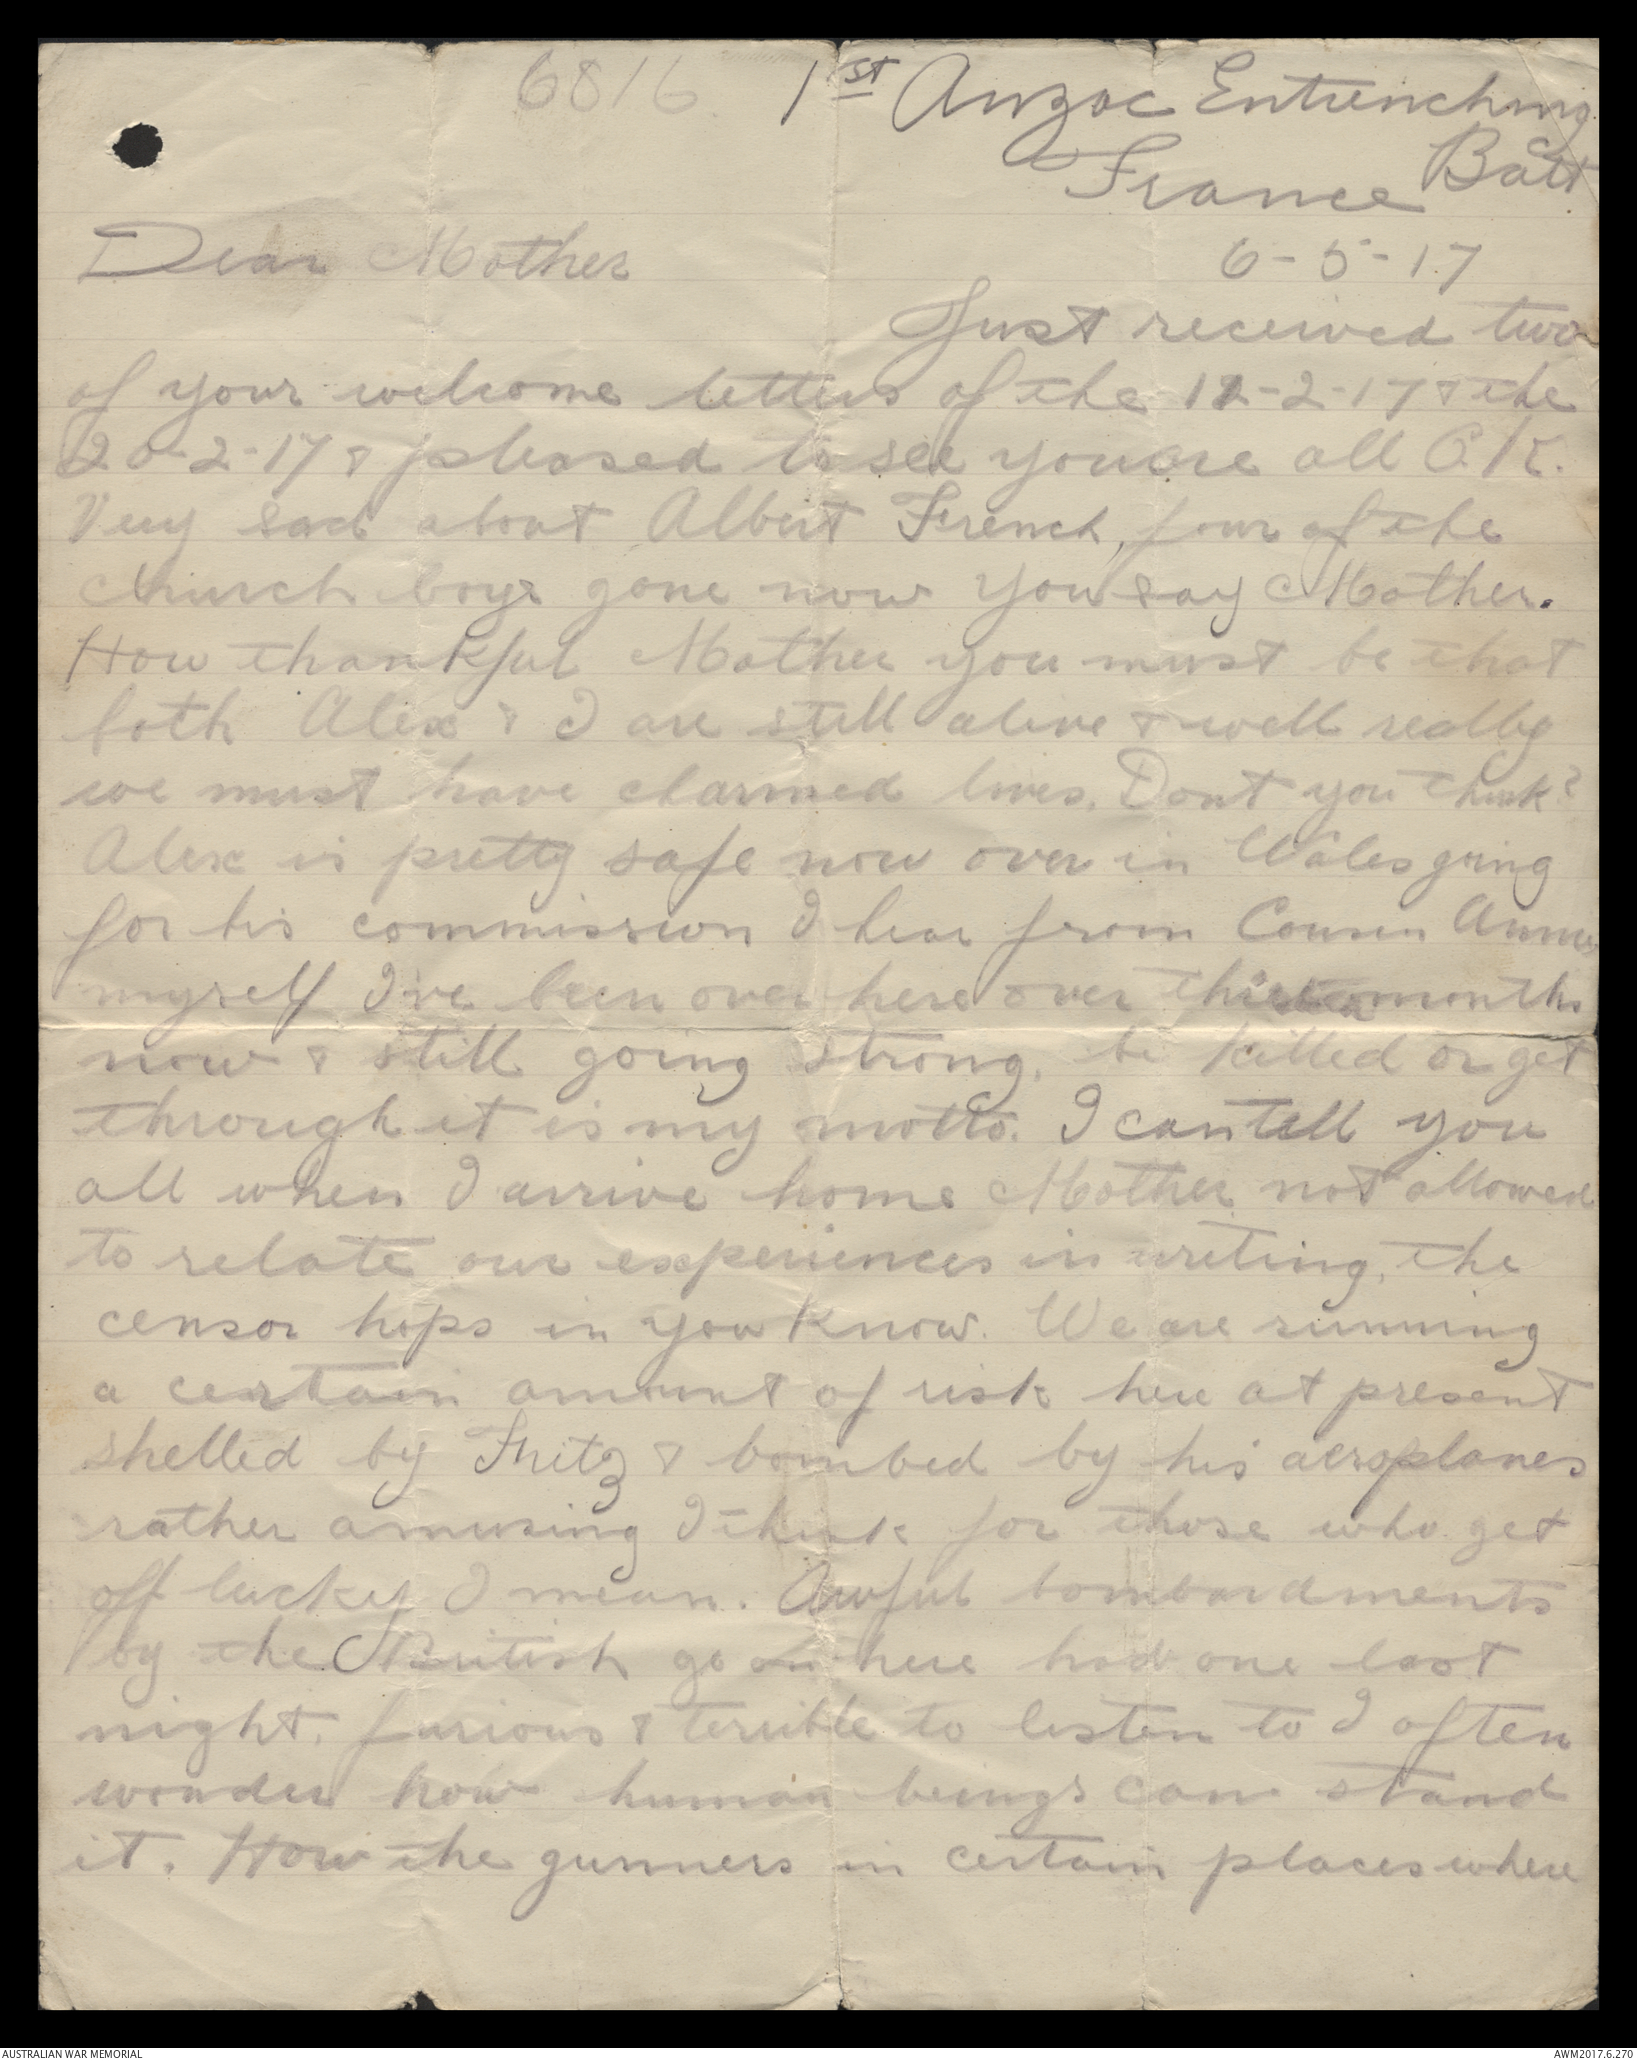 6816 1st Anzac Entrenching
Batt
France
6-5-17
Dear Mother
Just received two
of your welcome letters of the 12-2-17 & the
20-2-17 & pleased to see you are all O.K.
Very sad about Albert French, four of the
church boys gone now you say Mother.
How thankful Mother you must be that
both Alex & I are still alive & well really
we must have charmed lives. Dont you think?
Alex is pretty safe now over in Wales going
for his commission I hear from Cousin Annie
myself I've been over here over thirteen months
now & still going strong. be killed or get
through it is my motto. I can tell you
all when I arrive home Mother not allowed
to relate our experiences in writing, the
censor hops in you know. We are running
a certain amount of risk here at present
shelled by Fritz & bombed by his aeroplanes
rather amusing I think for those who get
off lucky I mean. Awful bombardments
by the British go on here had one last
night, furious & terrible to listen to I often
wonder how human beings can stand
it. How the gunners in certain places where
AUSTRALIAN WAR MEMORIAL
AWM2017.6.270